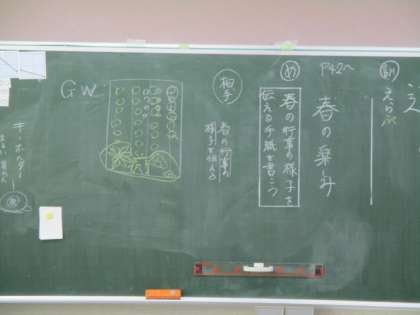 P42〜
春の楽しみ
め
春の行事の様子を
伝える手紙を書こう
相手
春の行事の
様子を伝える
GW
キーホルダー